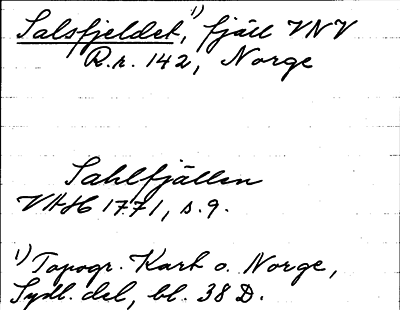 Salsfjeldet,¹⁾ fjäll VNV
R.r. 142, Norge
Sahlfjällen
VAH 1771, s. 9.
¹⁾ Topogr. Kart o. Norge,
Sydl. del, bl. 38 D.